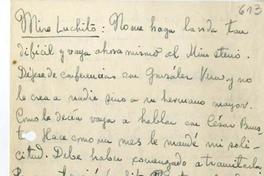 613
Mire Luchito: No me haga la vida tan
difícil y vaya ahora mismo al Ministerio.
Déjese de conferencias con González Vera y no
le crea a nadie sino a un hermano mayor.
Como le decía vaya a hablar con César Bunster
Hace como un mes le mandé mi soli-
citud. Debe haber comenzado a tramitarla